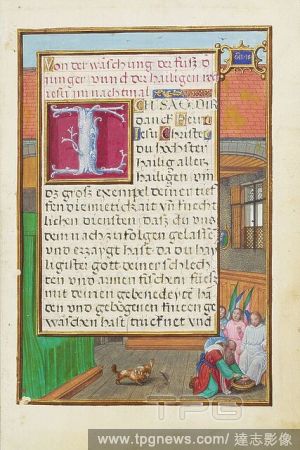 Von der waschung der fusz d
junger vnnd der heiligen
im nachtmal
ICH SAG DIR
danck Herr
Jesu Christe
du hochster
heilig aller
heiligen vm
dz gros exempel deiner tief
fen diemietickait vn knecht
lichen diensten, dasz du vns
dem nach zufolgen gelasse
vnd erzaygt hast da du hay
ligister gott deiner schlech
ten vnd armen juscher fuesz
mit deinen gebenedeyte hä
den vnd gebognen knieen ge
waschen hast trucknet vnd
TPG
www.tpgnews.com/ 達志影像